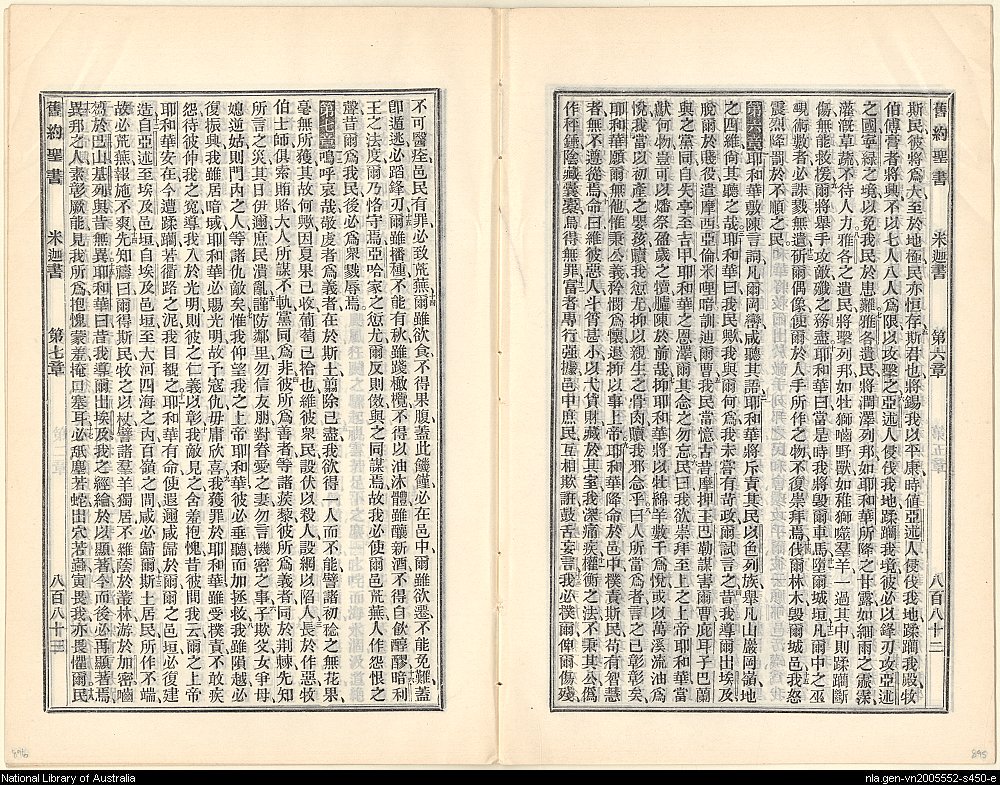 舊約聖書　米迦書　第六章　八百八十二
斯民民彼將爲大至於地極民亦恒存斯君也將錫我以平康時值亞述人侵伐我地蹂躪我殿牧
伯傅膏者將興不以七人八人爲限以攻擊之亞述人侵伐我地蹂躪我境彼必以鋒刃攻亞述
之國寧綠之境以免我民於患難雅各遺民將潤澤列邦如耶和華所降之甘露如細雨之霢霂
灌漑草蔬不待人力雅各之遺民將擊列邦如牡獅嚙野獸如稚獅噬羣羊一過其中則蹂躪斷
傷無能救援爾將舉手攻敵殲之務盡耶和華曰當是時我將毀爾車馬墮爾城垣凡爾中之巫
覡術數者必誅戮無遺斫爾偶像使爾於人手所作之物不復崇拜焉伐爾林木毀爾城邑我怒
震烈降罰於不順之民
第六章耶和華敷陳言詞凡爾岡巒咸聽其語耶和華將斥責其民以色列族舉凡山巖岡嶺地
之四維尙其聽之哉耶和華曰我民歟我與爾何爲我未嘗有苛政爾試言之昔我導爾出埃及
脫爾於賤役遣摩西亞倫米哩暗訓迪爾曹我民當憶古昔摩押王巴勒謀害爾曹庇耳子巴蘭
與之黨同自失亭至吉甲耶和華之恩澤爾其念之勿忘民曰我欲崇拜至上之上帝耶和華當
獻何物豈可以燔祭盈歲之犢臚陳於前哉抑耶和華將以牡綿羊數千爲悅或以萬溪流油爲
悅我當以初產之嬰孩贖我愆尤抑以親生之骨肉贖我邪念乎曰人所當爲者言之已彰彰矣
耶和華願爾無他惟秉公義矜憫爲懷退抑以事上帝耶和華降命於邑中樸責斯民苟有智慧
者無不遵從焉命曰維彼惡人斗筲甚小以弋貨財藏於其室我深痛疾權衡之法不秉其公僞
作秤錘陰藏囊橐爲得無罪富者專行强據邑中庶民互相欺誑鼓舌妄言我必撲爾俾爾傷殘
不可醫痊邑民有罪必致荒蕪爾雖欲食不得果腹蓋此饑饉必在邑中爾雖欲遷不能免難蓋
卽遁逃必蹈鋒刃爾雖播種不能有秋雖踐橄欖不得以油沐體雖釀新酒不得自飲醇醪暗利
王之法度爾乃恪守焉亞哈家之愆尤爾反則傚與之同謀焉故我必使爾邑荒蕪人作怨恨之
聲昔爾爲我民後必爲衆戮辱焉
第七章嗚呼哀哉敬虔者爲義者在於斯土翦除已盡我欲得一人而不能譬諸初稔之無花果
毫無所獲其故何歟因夏果已收葡萄已拾也維彼衆民設伏以殺人設網以陷人長於作惡牧
伯士師俱索賄賂大人所謀不軌黨同爲非彼所爲善者等諸蒺藜彼所爲義者同於荆棘先知
所言之災其日伊邇庶民潰亂謹防鄰里勿信友朋對眷愛之妻勿言機密之事子欺父女爭母
媳逆姑則門內之人等諸仇敵矣惟我仰望我之上帝耶和華彼必垂聽而加拯救我雖隕越必
復振興我雖居暗域耶和華必賜光明故予寇仇毋庸欣喜我獲罪於耶和華雖受樸責不敢疾
怨待彼伸我之寃導我入於光明則彼之仁義以彰我敵見之含羞抱愧昔彼問我云爾之上帝
耶和華安在今遭蹂躪若衢路之泥我目覩之耶和華有命使遐邇咸歸於爾爾之邑垣必復建
造自亞述至埃及邑垣自埃及邑垣至大河四海之內百嶺之間咸必歸爾斯土居民所作不端
故必荒蕪報施不爽先知禱曰爾得斯民牧之以杖譬諸羣羊獨居不離蔭於叢林游於加密嚙
芻於巴山基列與昔無異耶和華曰昔我導爾出埃及我之經綸於以顯著今而後必再顯著焉
異邦之人素彰厥能見我所爲抱愧蒙羞掩口塞耳必䑛塵若蛇出穴若蟲寅畏我亦畏懼爾民
舊約聖書　米迦書　第七章　八百八十三
896
895
National Library of Australia
nla.gen-vn2005552-s450-e